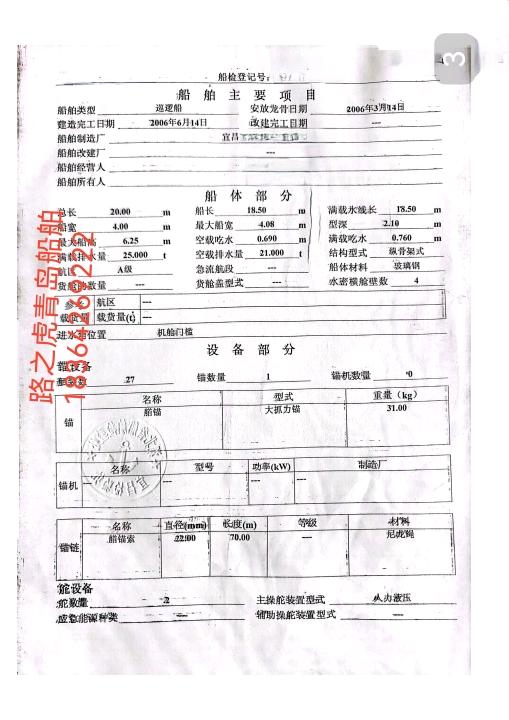 3
船检登记号:
船舶主要项目
船舶类型 巡逻船 安放龙骨日期 2006年3月14日
建造完工日期 2006年6月14日 改建完工日期 ---
船舶制造厂 宜昌
船舶改建厂 ---
船舶经营人
船舶所有人
船体部分
总长 20.00 m 船长 18.50 m 满载水线长 18.50 m
船宽 4.00 m 最大船宽 4.08 m 型深 2.10 m
最大船高 6.25 m 空载吃水 0.690 m 满载吃水 0.760 m
满载排水量 25.000 t 空载排水量 21.000 t 结构型式 纵骨架式
航区 A级 急流航段 --- 船体材料 玻璃钢
货舱数量 --- 货舱盖型式 --- 水密横舱壁数 4
航区 ---
载货量 载货量(t) ---
进水角位置 机舱门槛
设备部分
锚设备
27 锚数量 1 锚机数量 0
名称 型式 重量(kg)
锚 艏锚 大抓力锚 31.00
名称 型号 功率(kW) 制造厂
锚机 --- --- ---
名称 直径(mm) 长度(m) 等级 材料
锚链 艏锚索 22.00 70.00 --- 尼龙绳
舵设备
舵数量 2 主操舵装置型式 人力液压
应急能源种类 --- 辅助操舵装置型式 ---
路之虎青岛船舶
18364269222